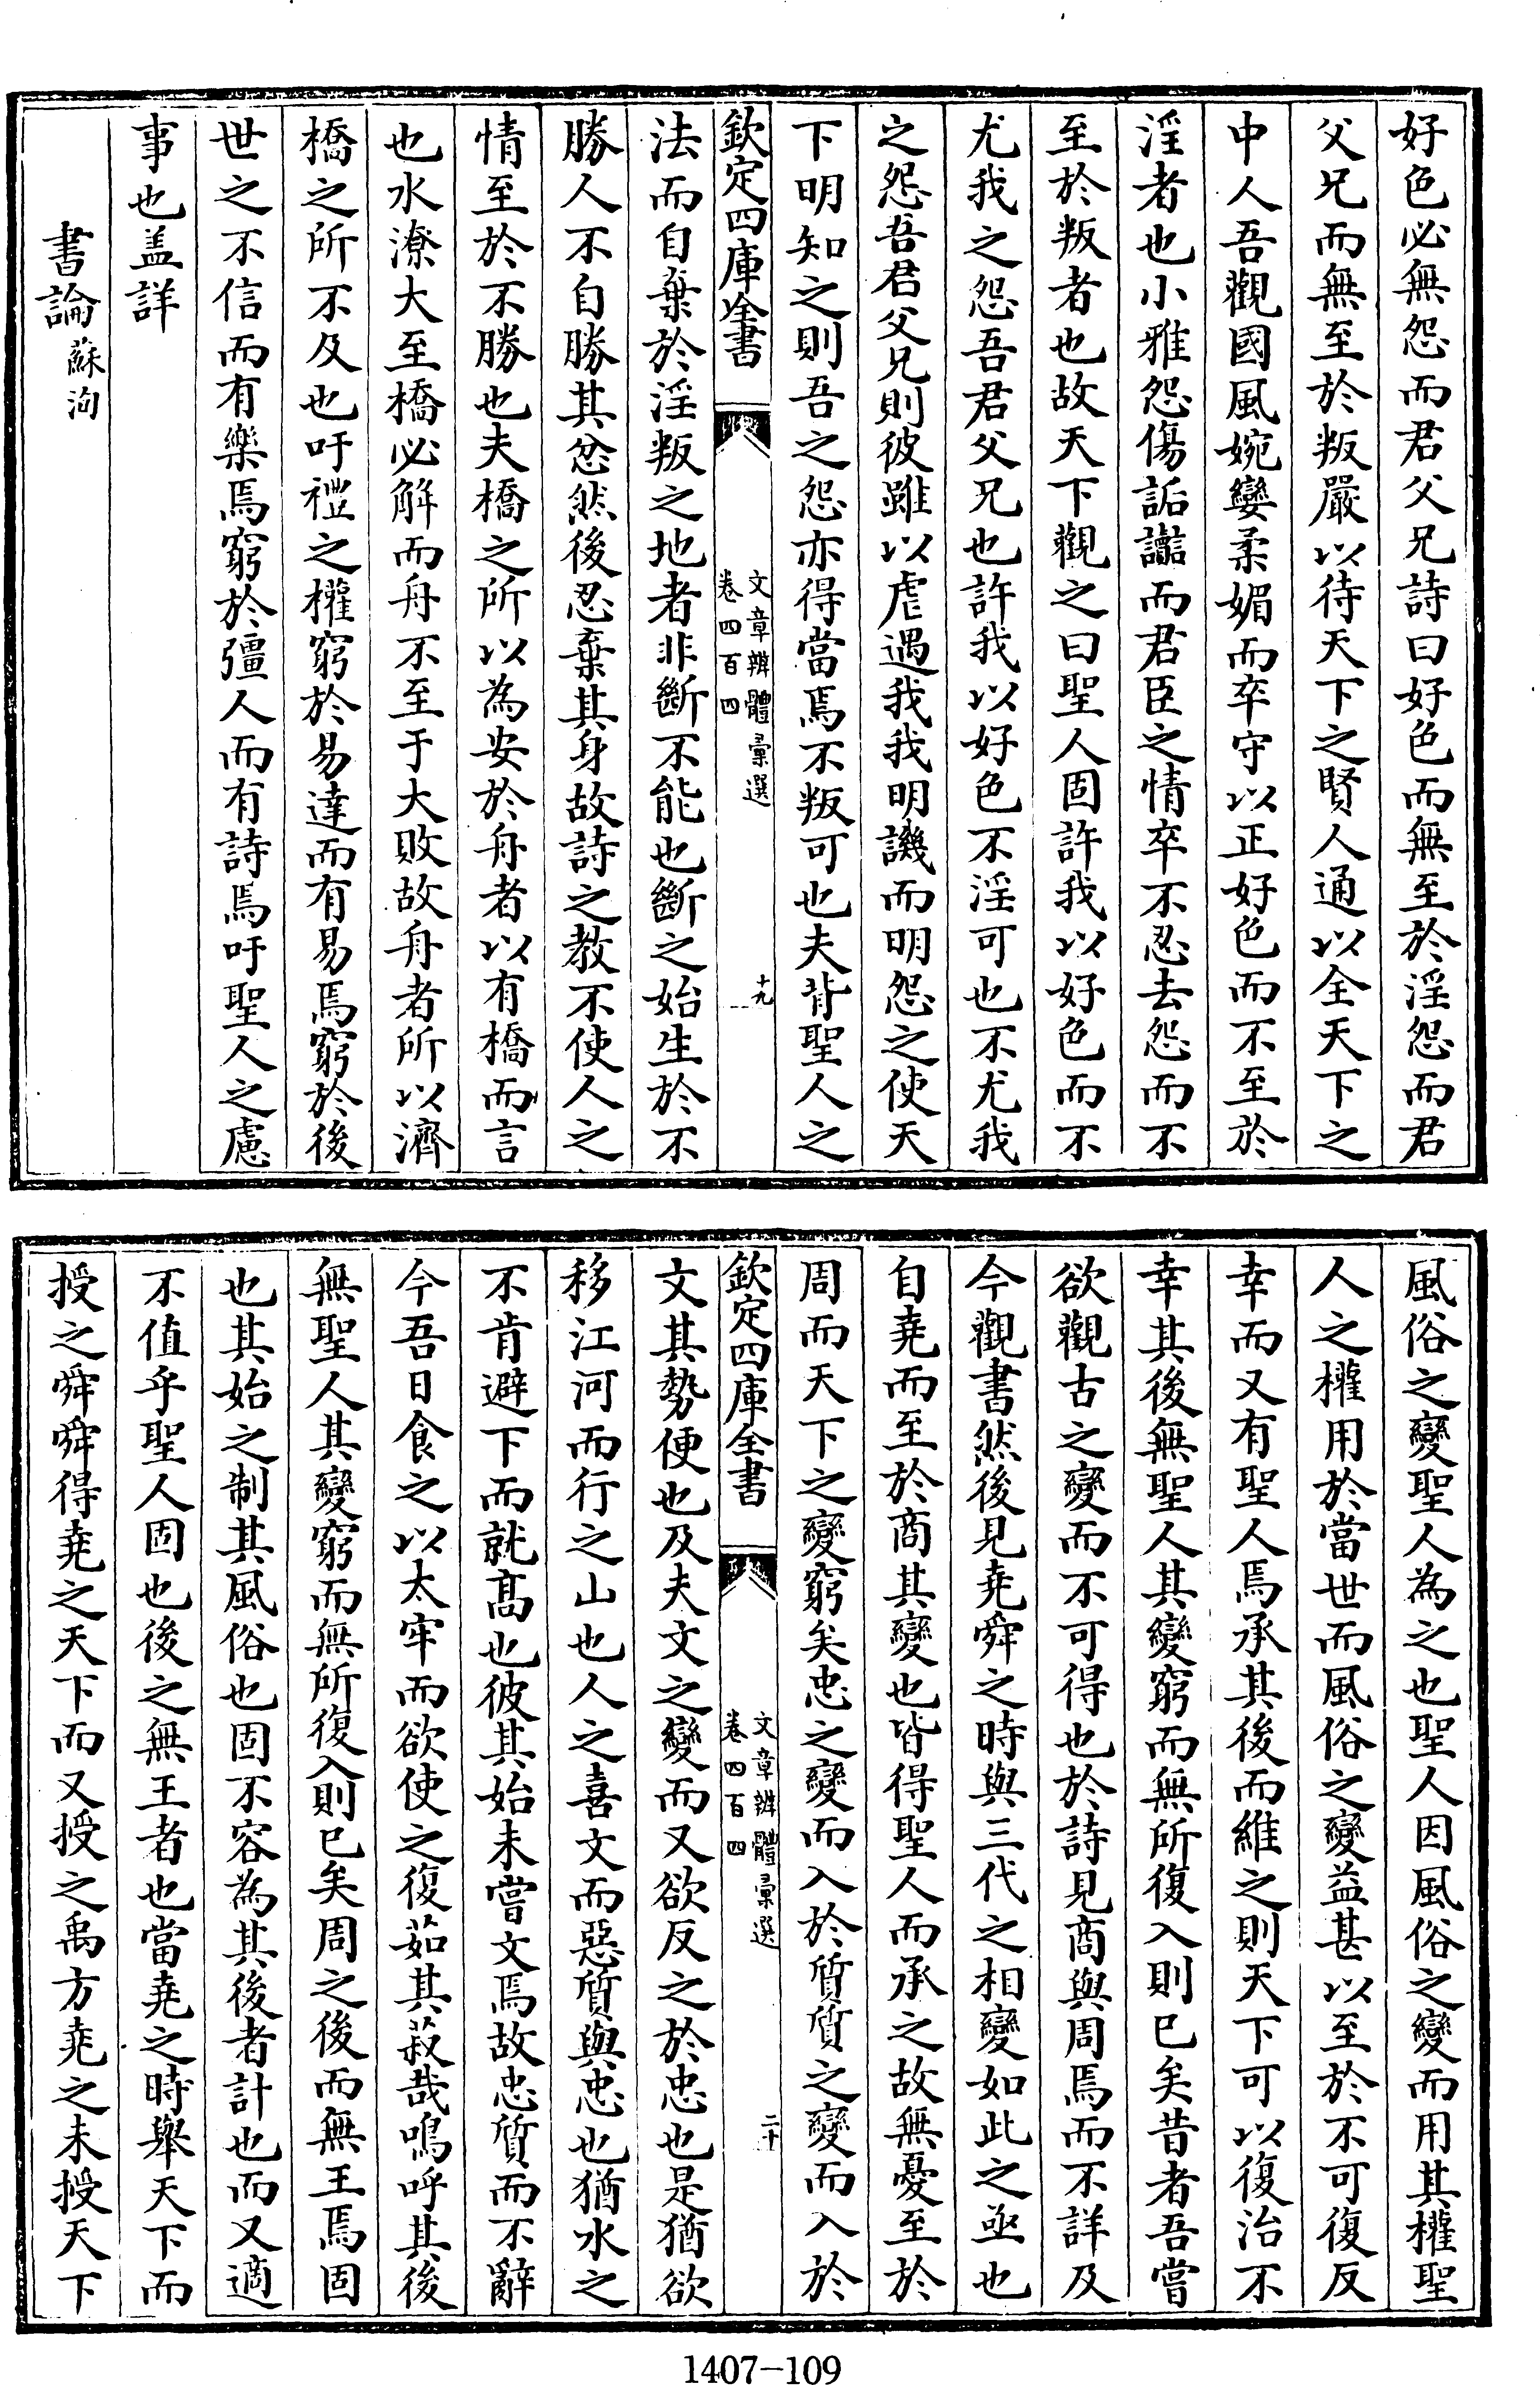 好色必無怨而君父兄詩曰好色而無至於淫怨而君
父兄而無至於叛嚴以待天下之賢人通以全天下之
中人吾觀國風婉孌柔媚而卒守以正好色而不至於
淫者也小雅怨傷詬讟而君臣之情卒不忍去怨而不
至於叛者也故天下觀之曰聖人固許我以好色而不
尤我之怨吾君父兄也許我以好色不淫可也不尤我
之怨吾君父兄則彼雖以虐遇我我明譏而明怨之使天
下明知之則吾之怨亦得當焉不叛可也夫背聖人之
欽定四庫全書
文章辨體彙選
卷四百四
十九
法而自棄於淫叛之地者非斷不能也斷之始生於不
勝人不自勝其忿然後忍棄其身故詩之教不使人之
情至於不勝也夫橋之所以為安於舟者以有橋而言
也水潦大至橋必解而舟不至于大敗故舟者所以濟
橋之所不及也吁禮之權窮於易達而有易焉窮於後
世之不信而有樂焉窮於彊人而有詩焉吁聖人之慮
事也盖詳
書論蘇洵
風俗之變聖人為之也聖人因風俗之變而用其權聖
人之權用於當世而風俗之變益甚以至於不可復反
幸而又有聖人焉承其後而維之則天下可以復治不
幸其後無聖人其變窮而無所復入則已矣昔者吾嘗
欲觀古之變而不可得也於詩見商與周焉而不詳及
今觀書然後見堯舜之時與三代之相變如此之亟也
自堯而至於商其變也皆得聖人而承之故無憂至於
周而天下之變窮矣忠之變而入於質質之變而入於
欽定四庫全書
文章辨體彙選
卷四百四
二十
文其勢便也及夫文之變而又欲反之於忠也是猶欲
移江河而行之山也人之喜文而惡質與忠也猶水之
不肯避下而就髙也彼其始未嘗文焉故忠質而不辭
今吾日食之以太牢而欲使之復茹其菽哉嗚呼其後
無聖人其變窮而無所復入則已矣周之後而無王焉固
也其始之制其風俗也固不容為其後者計也而又適
不值乎聖人固也後之無王者也當堯之時舉天下而
授之舜舜得堯之天下而又授之禹方堯之未授天下
1407-109